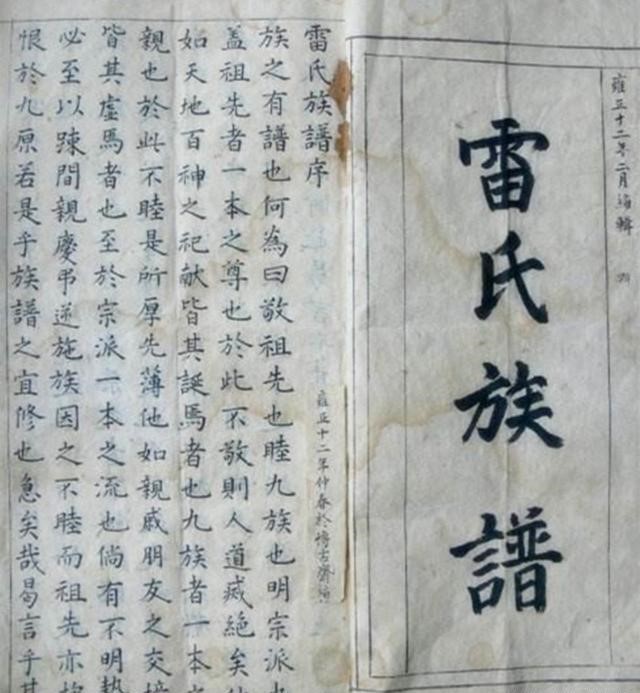 雍正十二年二月編輯
雷氏族譜
雷氏族譜序
族之有譜也何為曰敬祖先也睦九族也明宗派也
蓋祖先者一本之尊也於此不敬則人道滅絕矣
如天地百神之祀献皆其誕焉者也九族者一本
親也於此不睦是所厚先薄他如親戚朋友之交
皆其虛焉者也至於宗派一本之流也倘有不明
必至以踈間親慶弔逆施族因之不睦而祖先亦
恨於九原若是乎族譜之宜修也急矣哉曷言乎其
雍正十二年仲春於